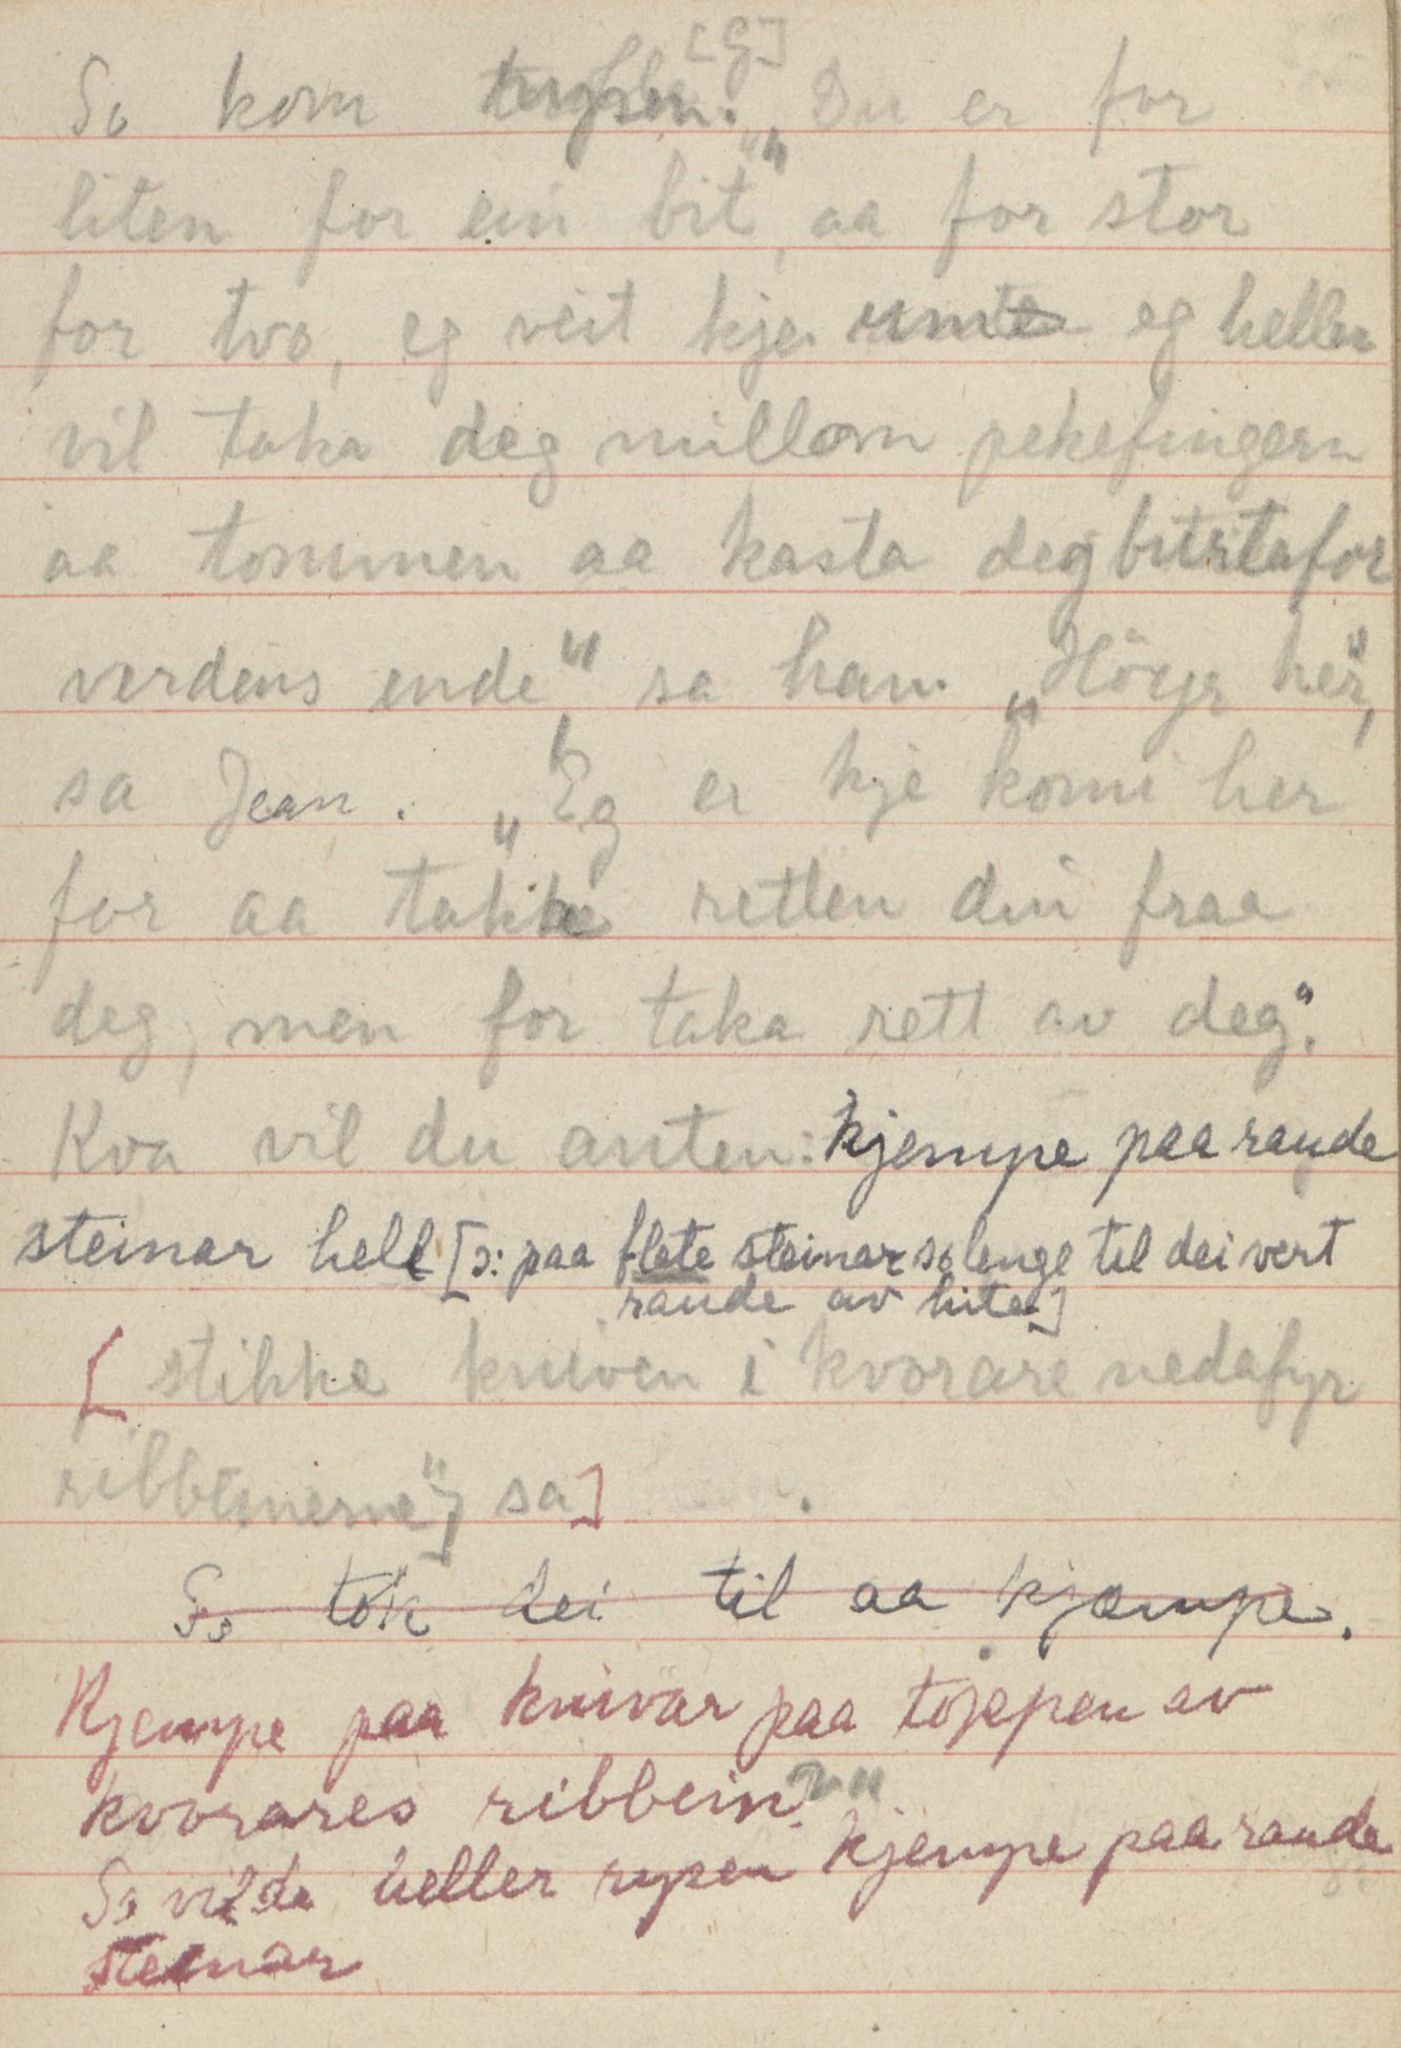 [G]
So kom "Du er for
liten for ein bit", aa for stor
for tvo, eg veit kje um eg heller
vil taka deg millom pekefingern
aa tommen aa kasta deg burtafor
verdens ende" sa han. "Höyr her",
sa Jean. "Eg er kje komi her
for aa takke retten din fraa
deg, men for taka rett av deg".
Kva vil du anten: kjempe paa raude
steinar hell [ɔ: paa flate steinar so lenge til dei vert
raude av hite]
[stikke kniven i kvorare nedafyr
ribbeinerne"] sa]
So tok dei til aa kjempe.
Kjempe paa knivar paa toppen av
kvorares ribbein?"
So vilde heller rysen kjempe paa raude
steinar